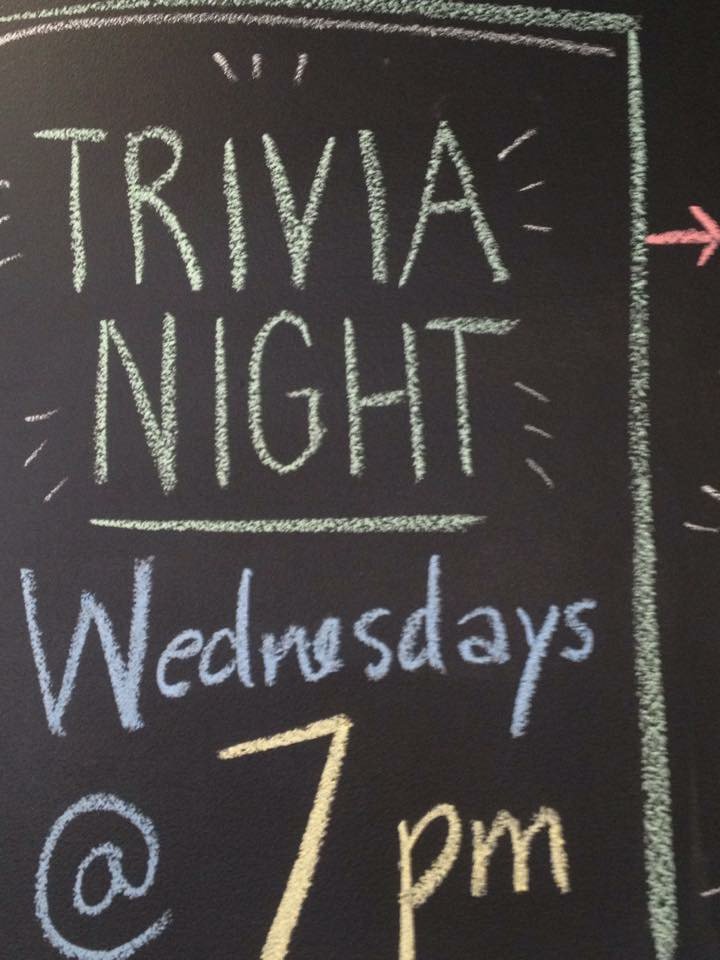 TRIVIA
NIGHT
Wednesdays
@ 7 pm